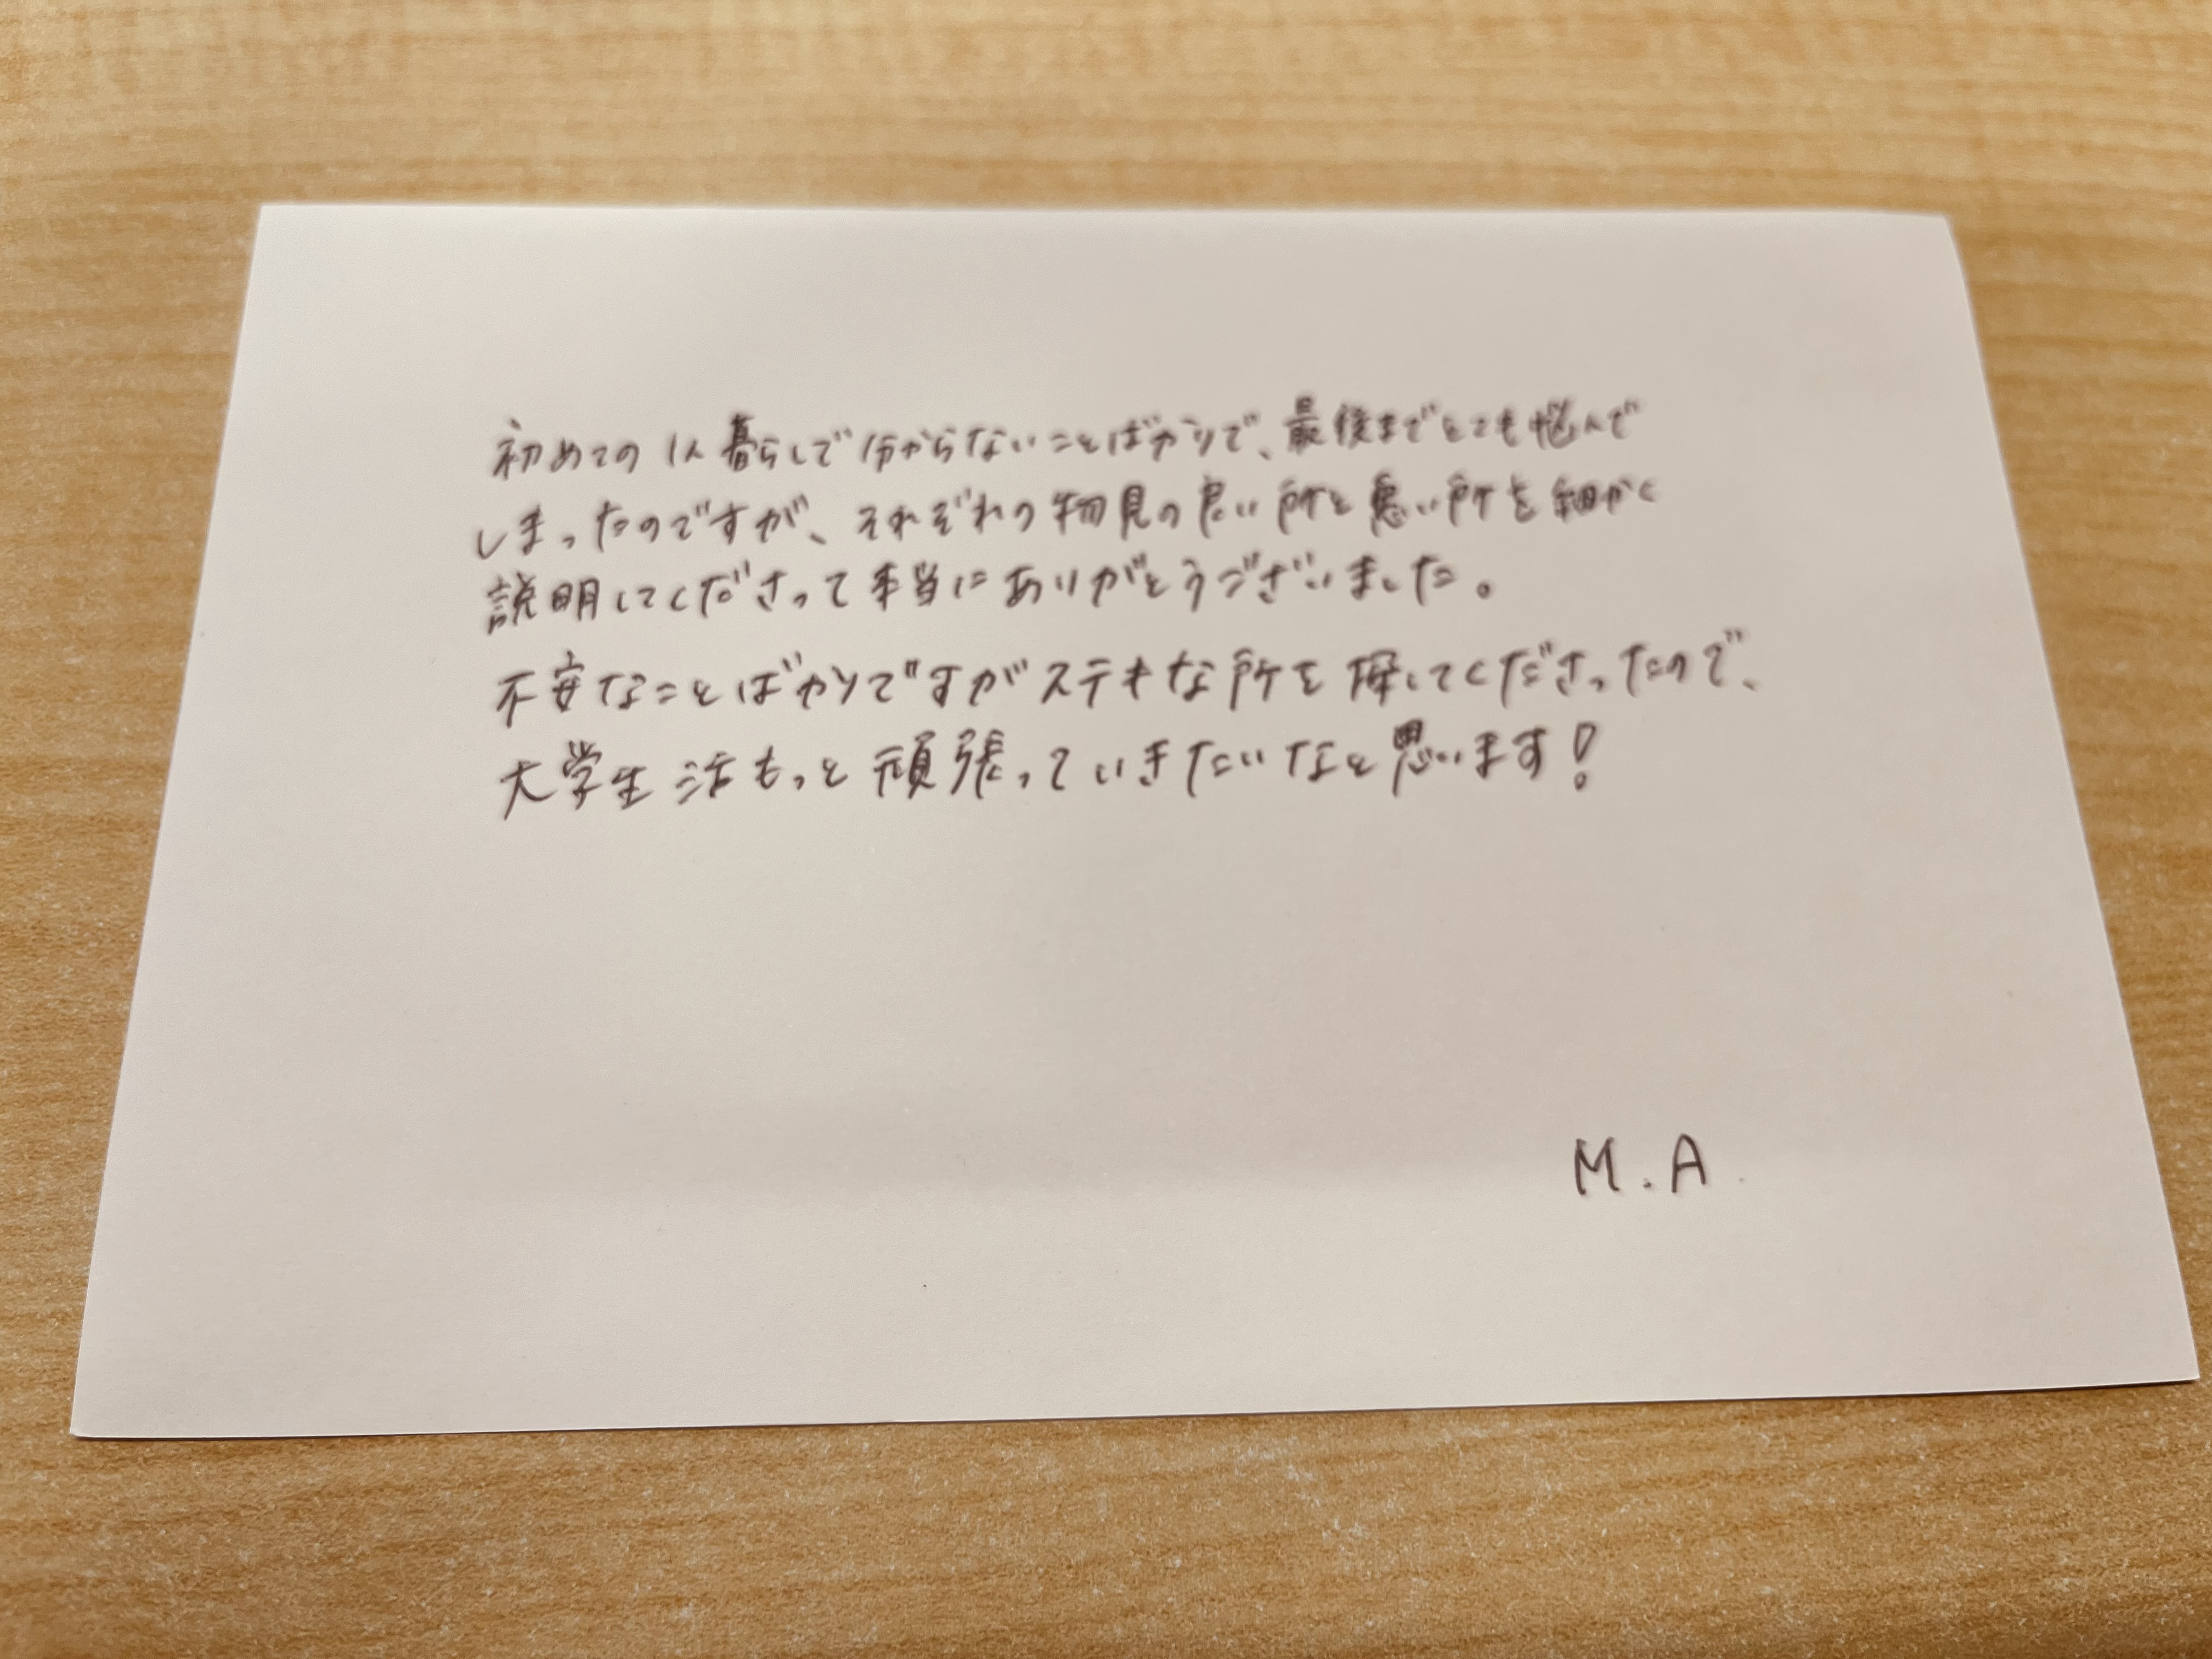 初めての1人暮らしで分からないことばかりで、最後までとても悩んで
しまったのですが、それぞれの物見の良い所と悪い所を細かく
説明してくださって本当にありがとうございました。
不安なことばかりですがステキな所を探してくださったので、
大学生活もっと頑張っていきたいなと思います!
M.A.